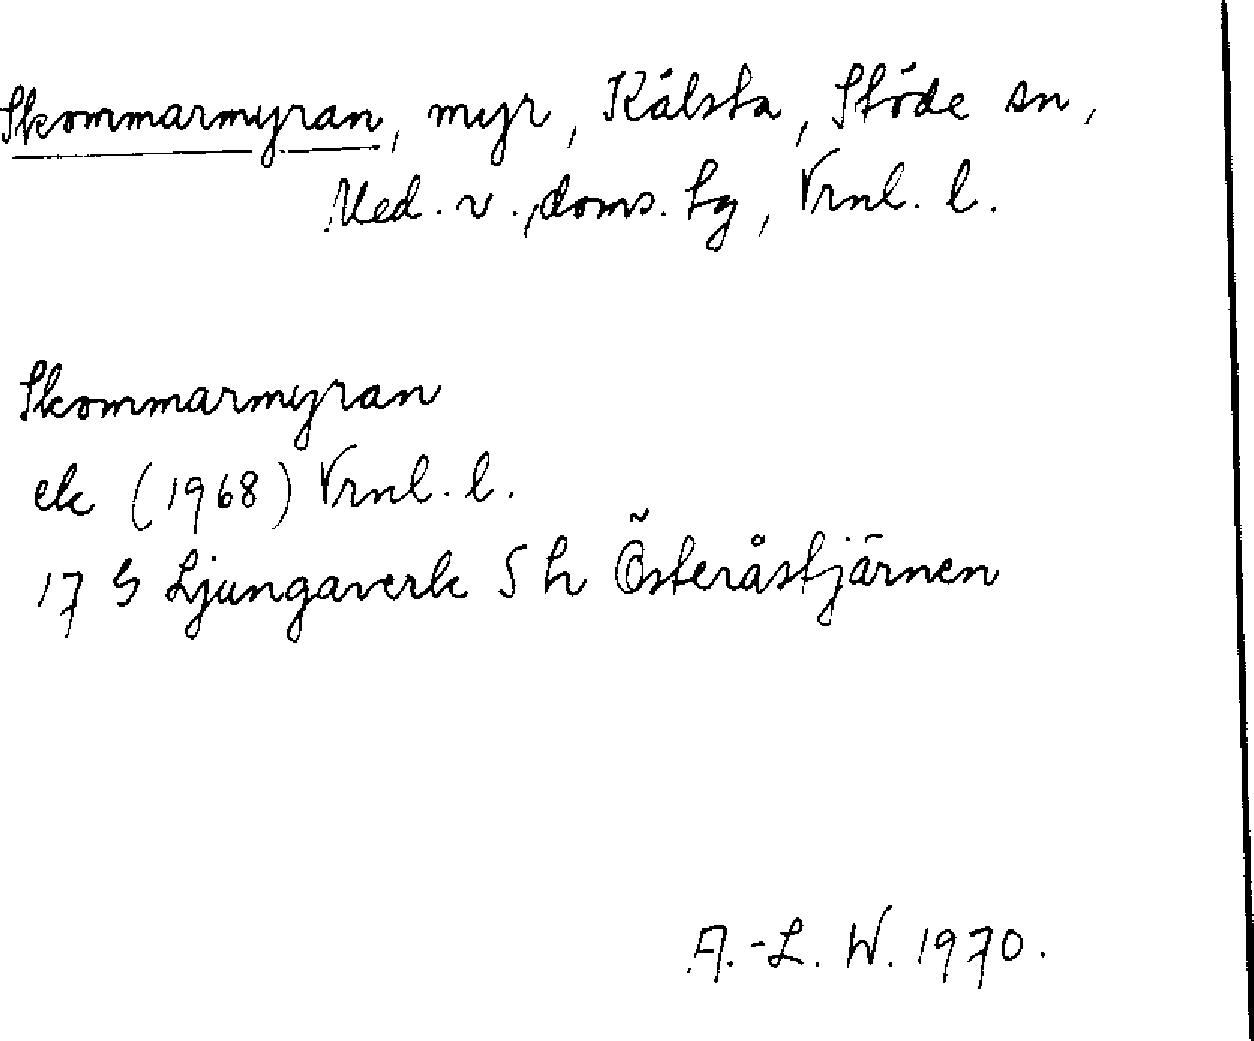 Skommarmyran, myr, Kälsta, Stöde sn,
Med. v., doms. hg, Vrnl. l.
Skommarmyran
ek (1968) Vrnl. l.
17 G Ljungaverk 5 h Österåstjärnen
A.-L. W. 1970.